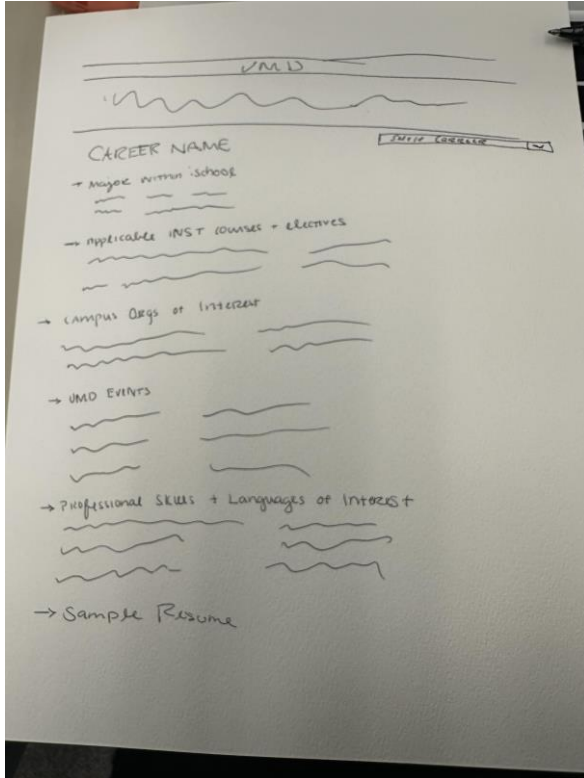 UMD
CAREER NAME
→ Major within ischool
→ Applicable INST courses + electives
→ Campus Orgs of Interest
→ UMD EVENTS
→ Professional Skills + Languages of Interest
→ Sample Resume